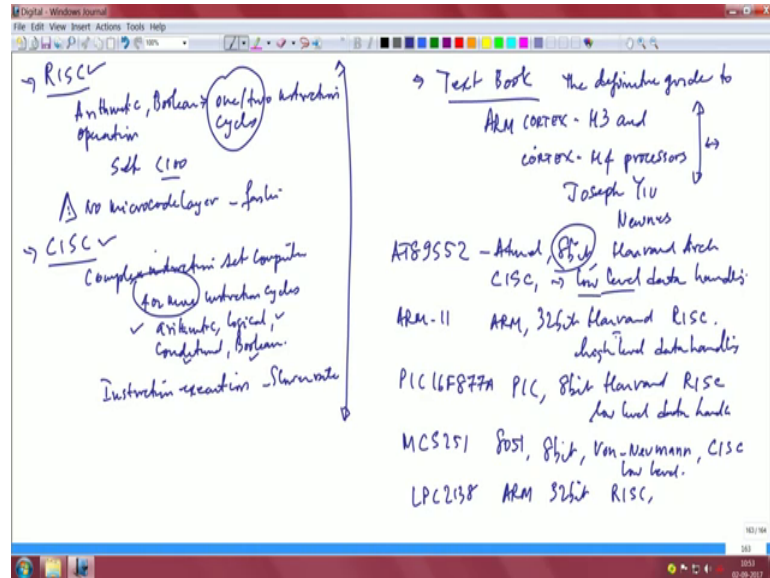 Digital - Windows Journal
File Edit View Insert Actions Tools Help
→ RISC ✓
Arithmetic, Boolean → one/two instruction
operation cycles
Set <100
No microcode layer - faster
→ CISC ✓
Complex instruction set Computer
4 or more instruction cycles
✓ arithmetic, logical, ✓
Conditional, Boolean.
Instruction execution - Slower rate
→ Text Book The definitive guide to
ARM CORTEX - M3 and
CORTEX - M4 processors
Joseph Yiu
Newnes
AT89S52 - Atmel, 8bit, Harvard Arch
CISC, → low level data handling
ARM-11 ARM, 32bit Harvard RISC.
high level data handling
PIC16F877A PIC, 8bit Harvard RISC
low level data handle
MCS251 8051, 8bit, Von-Neumann, CISC
low level.
LPC2138 ARM 32bit RISC,
163/164
163
1053
02-09-2017